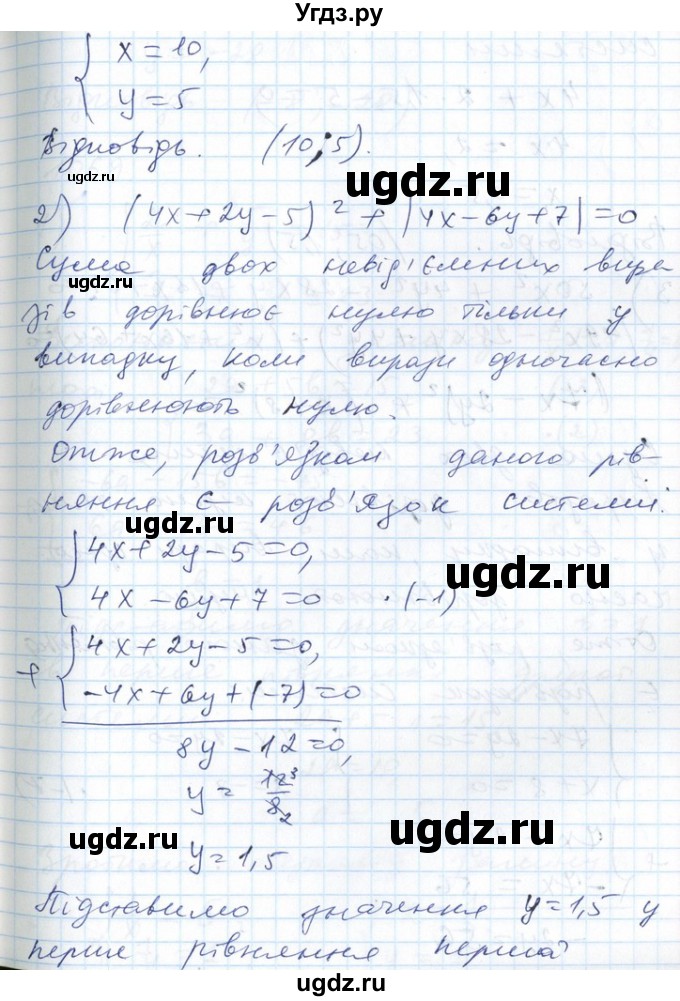 Угдз.ру
{ x = 10,
y = 5
Відповідь. (10; 5).
ugdz.ru
ugdz.ru
2) (4x + 2y - 5)² + |4x - 6y + 7| = 0
Сума двох невід'ємних вира-
зів дорівнює нулю тільки у
випадку, коли вирази одночасно
дорівнюють нулю.
Отже, розв'язком даного рів-
няння є розв'язок системи:
ugdz.ru
{ 4x + 2y - 5 = 0,
4x - 6y + 7 = 0 · (-1)
ugdz.ru
+ { 4x + 2y - 5 = 0,
-4x + 6y + (-7) = 0
8y - 12 = 0,
y = 12³/8₂
ugdz.ru
ugdz.ru
y = 1,5
Підставимо значення y = 1,5 у
перше рівняння першої
ugdz.ru